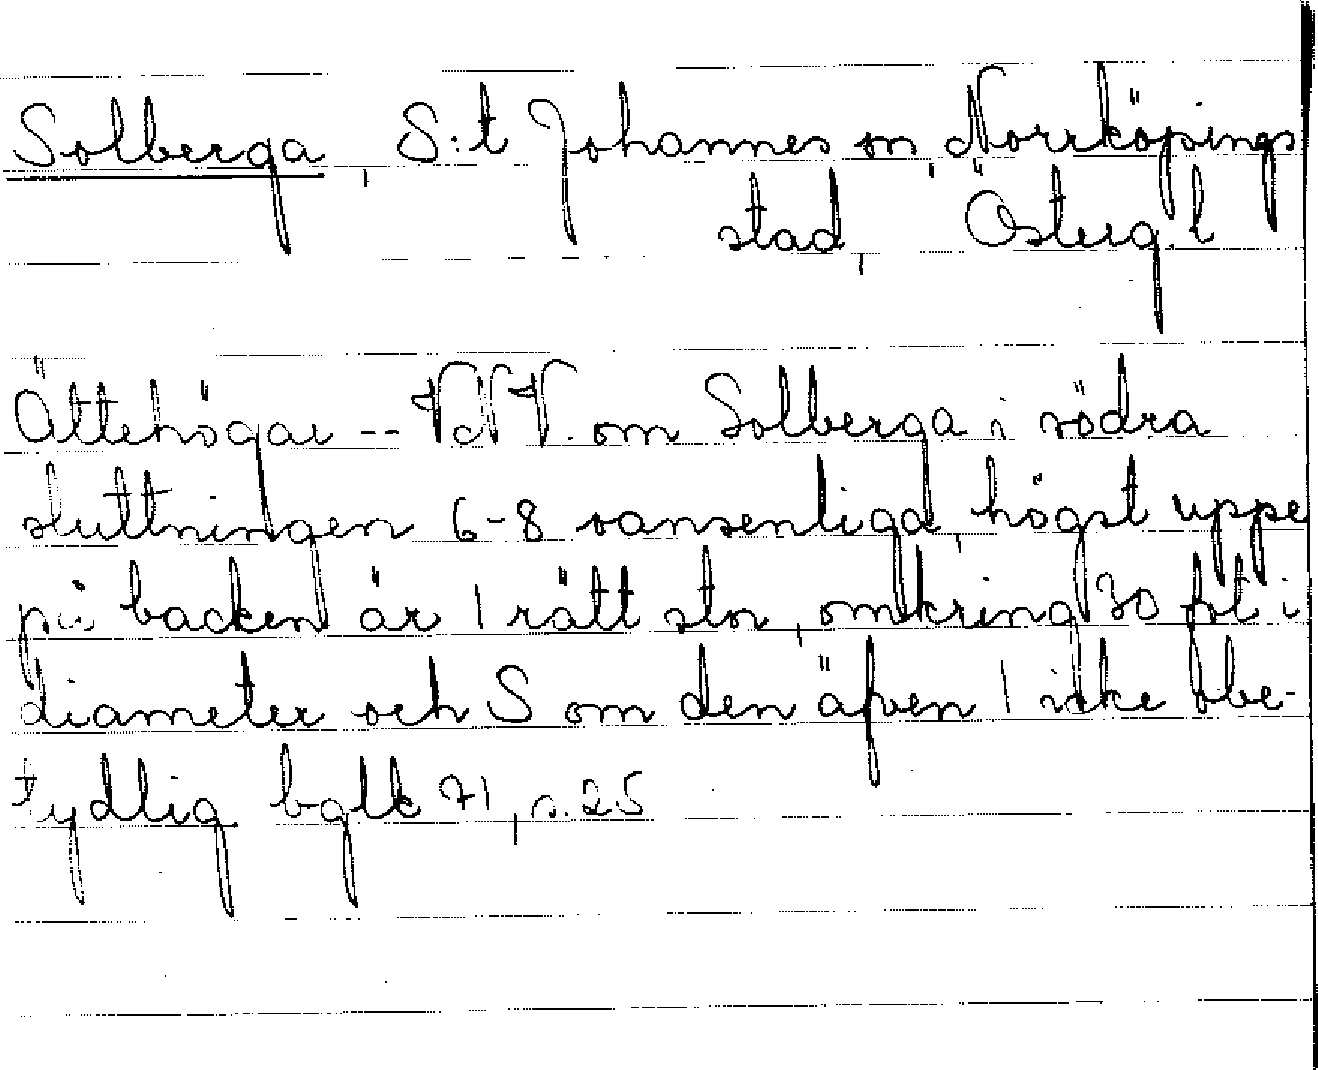 Solberga, S:t Johannes sn, Norrköpings
stad, Österg.l
Ättehögar -- VNV. om Solberga i södra
sluttningen 6-8 vansenliga, högst uppe
på backen är 1 rätt stor, omkring 30 fot i
diameter och S om den äfven 1 icke obe-
tydlig bglk 71, s.25